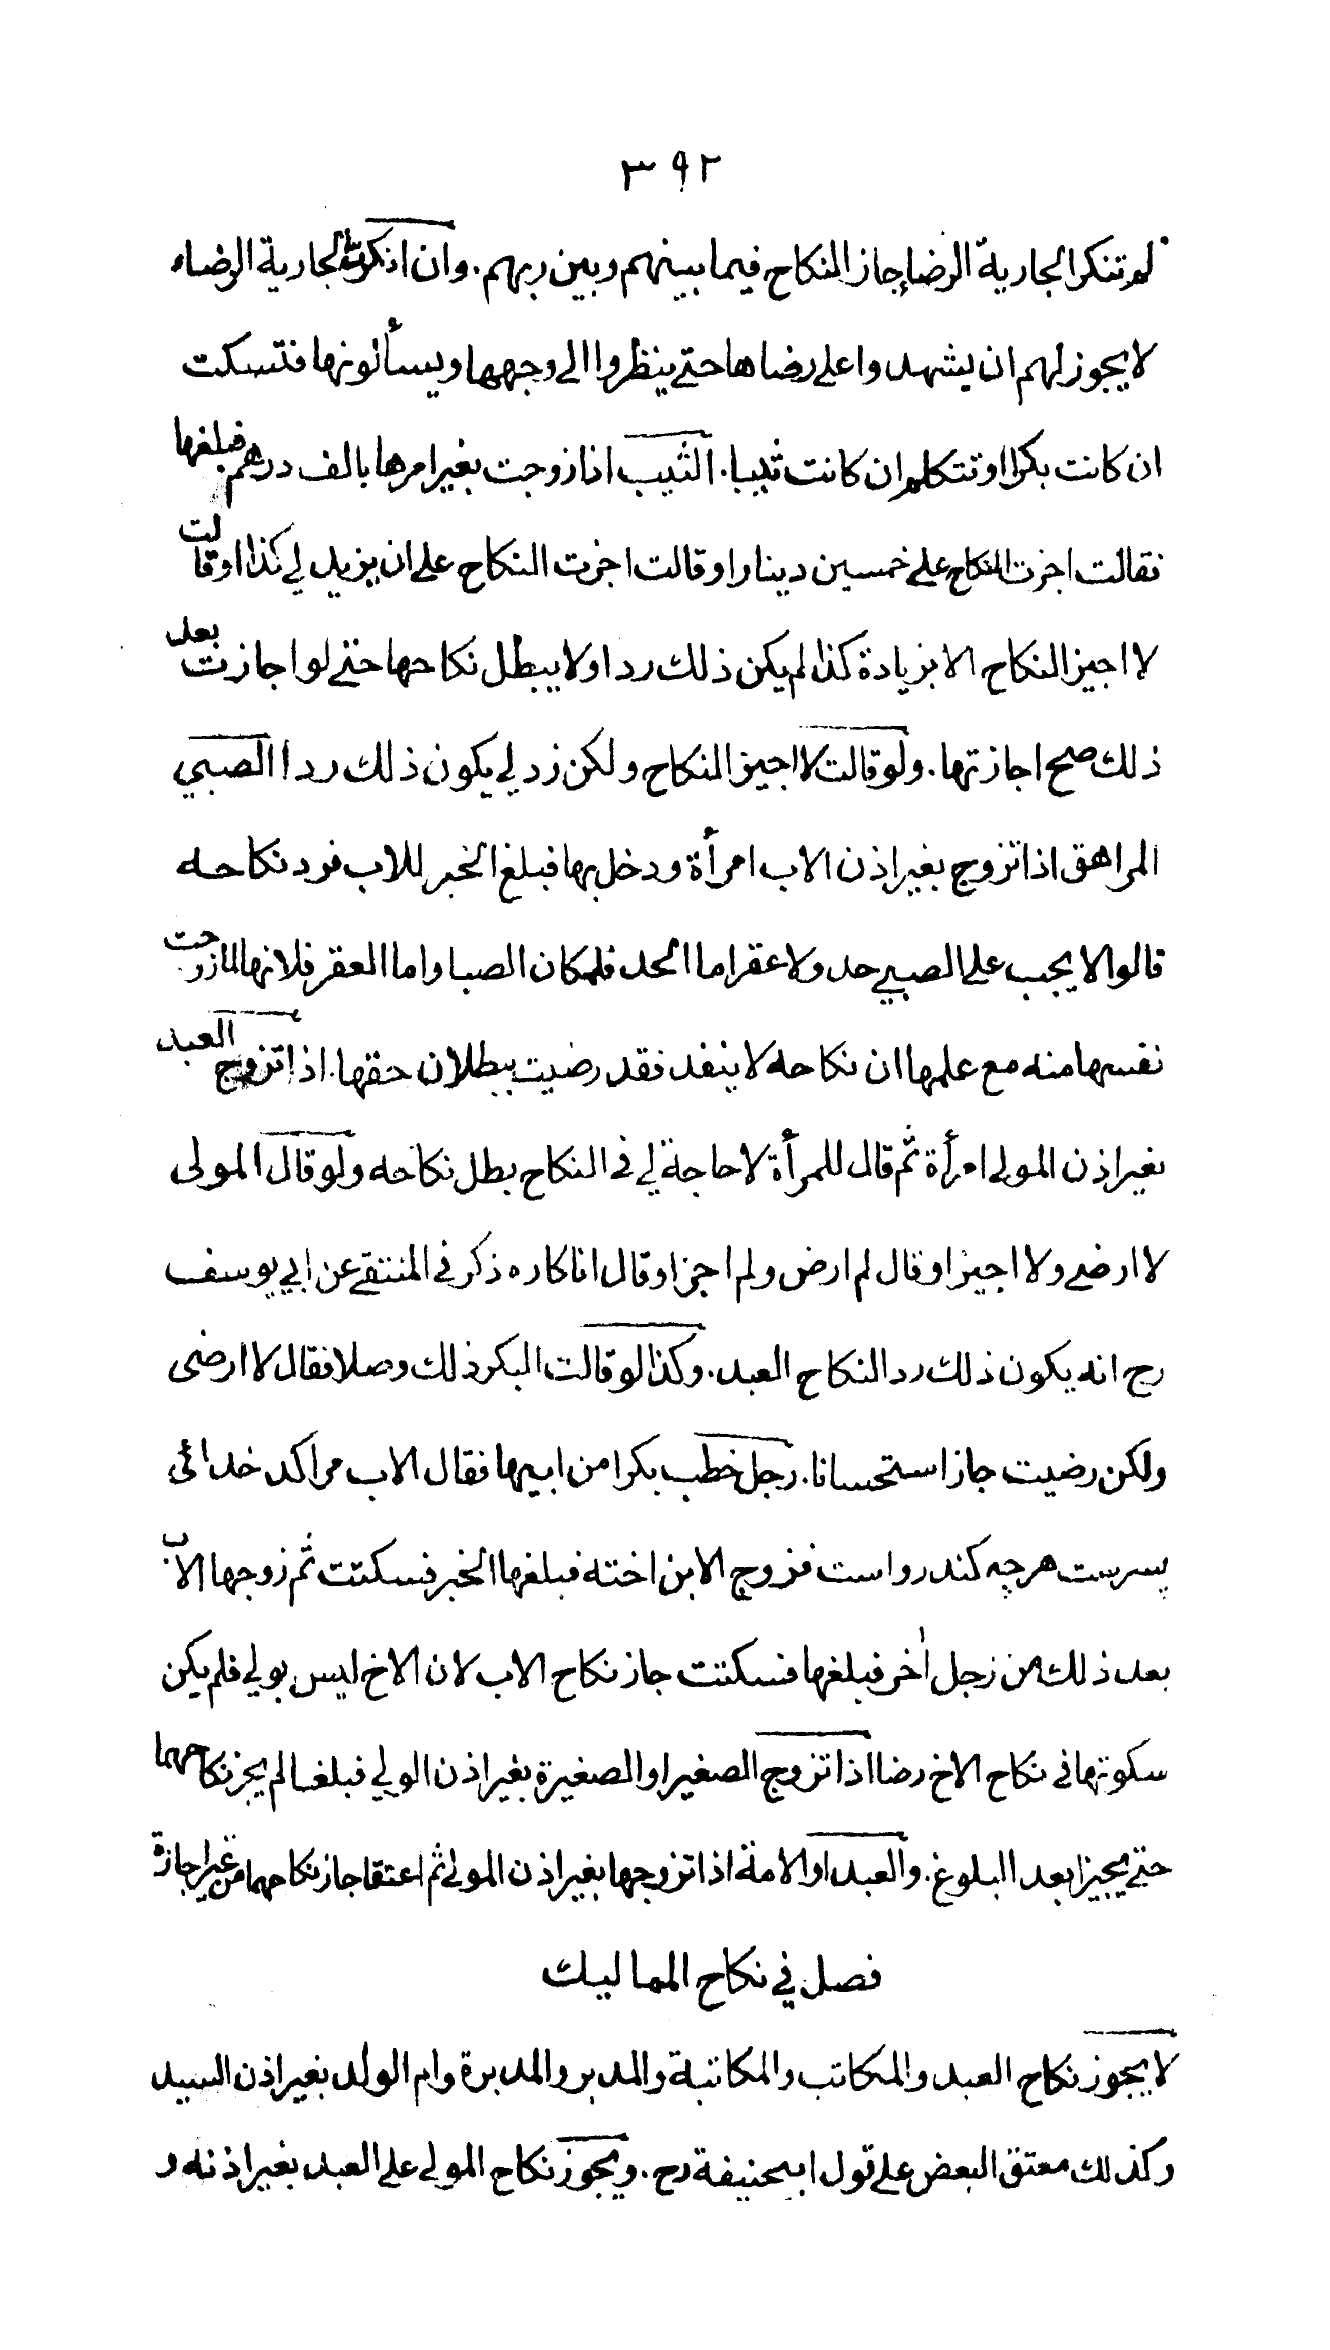 ٣٩٢
لم تنكر الجارية الرضا جاز النكاح فيما بينهم وبين ربهم. وان انكرت الجارية الرضاء
لا يجوز لهم ان يشهدوا على رضاها حتى ينظروا الى وجهها ويسألونها فتسكت
ان كانت بكرا او تتكلم ان كانت ثيبا. الثيب اذا زوجت بغير امرها بالف درهم فبلغها
فقالت اجزت النكاح على خمسين دينارا او قالت اجزت النكاح على ان يزيد لي كذا او قالت
لا اجيز النكاح الا بزيادة كذا لم يكن ذلك ردا ولا يبطل نكاحها حتى لو اجازت بعد
ذلك صح اجازتها. ولو قالت لا اجيز النكاح ولكن زد لي يكون ذلك ردا الصبي
المراهق اذا تزوج بغير اذن الاب امرأة ودخل بها فبلغ الخبر للاب فرد نكاحه
قالوا لا يجب على الصبي حد ولا عقر اما الحد فلمكان الصبا واما العقر فلانها لما زوجت
نفسها منه مع علمها ان نكاحه لا ينفد فقد رضيت ببطلان حقها. اذا تزوج العبد
بغير اذن المولى امرأة ثم قال للمرأة لا حاجة لي في النكاح بطل نكاحه ولو قال المولى
لا ارضى ولا اجيز او قال لم ارض ولم اجز او قال انا كاره ذكر في المنتقى عن ابي يوسف
رح انه يكون ذلك رد النكاح العبد. وكذا لو قالت البكر ذلك وصلا فقال لا ارضى
ولكن رضيت جاز استحسانا. رجل خطب بكرا من ابيها فقال الاب مرا كد خدائى
پسرست هرچه كند رواست فزوج الابن اخته فبلغها الخبر فسكتت ثم زوجها الاب
بعد ذلك من رجل اٰخر فبلغها فسكتت جاز نكاح الاب لان الاخ ليس بولي فلم يكن
سكوتها في نكاح الاخ رضا اذا تزوج الصغير او الصغيرة بغير اذن الولي فبلغا لم يجز نكاحهما
حتى يجيزا بعد البلوغ. والعبد او الامة اذا تزوجها بغير اذن المولى ثم اعتقا جاز نكاحهما من غير اجازة
فصل في نكاح المماليك
لا يجوز نكاح العبد والمكاتب والمكاتبة والمدبر والمدبرة وام الولد بغير اذن السيد
وكذلك معتق البعض على قول ابيحنيفة رح. ويجوز نكاح المولى على العبد بغير اذنه و